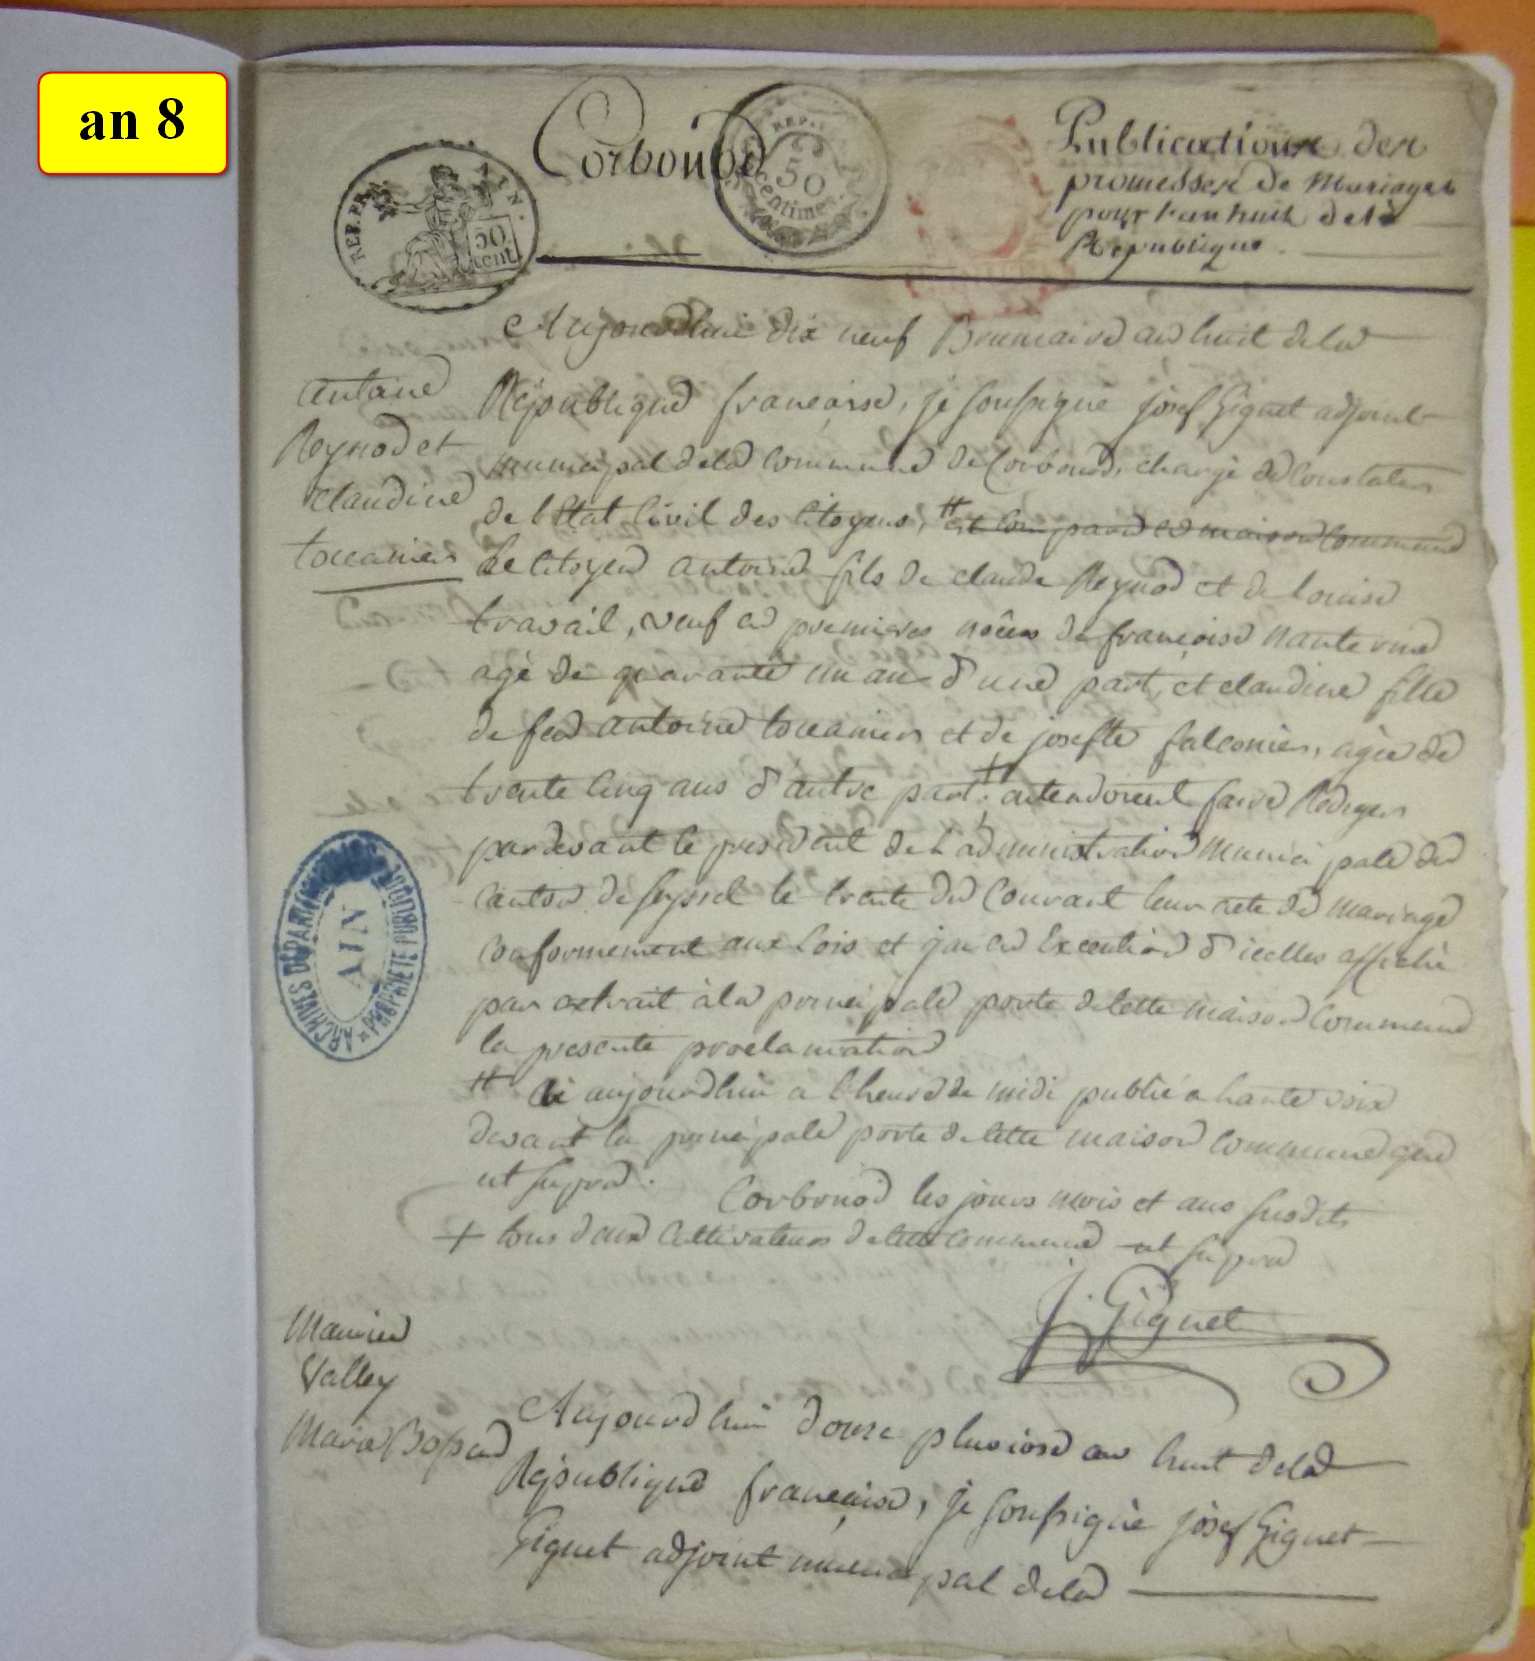 an 8
REP. FRA. AIN.
50
cent
Corbonod
REP.
50
centimes
Publications des
promesses de Mariages
pour l'an huit de la
République.
Aujourdhui dix neuf Brumaire an huit de la
Antoine
Reynod et
Claudine
toccanier
République francaise, je soussigné josef Giguet adjoint
municipal de la commune de Corbonod, chargé de Constater
de l'Etat Civil des Citoyens, # est comparu en maison commune
Le Citoyen antoine fils de claude Reynod et de Louise
travail, veuf en premieres nôces de françoise nanterme
agé de quarante un an d'une part, et claudine fille
de feu antoine toccanier et de josefte falconier, agée de
trente cinq ans d'autre part, + entendoient faire Rediger
pardevant le president de l'administration Municipale du
Canton de seyssel le trente du Courant leur acte de mariage
Conformement aux Lois et j'ai en Execution d'icelles affiché
par extrait à la principale porte de cette maison Commune
la presente proclamation
# ai aujourdhui a l'heure de midi publié a haute voix
devant la principale porte de cette maison Commune que
ut supra.
Corbonod les jours mois et ans susdits
+ tous deux Cultivateurs de cette commune ut supra
J. Giguet
ARCHIVES DÉPARTEMENTALES
AIN
PROPRIÉTÉ PUBLIQUE
Maurice
Valley
Marie Bossend
Aujourdhui douze pluviose an huit de la
République francaise, je soussigné josef Giguet
Giguet adjoint municipal de la